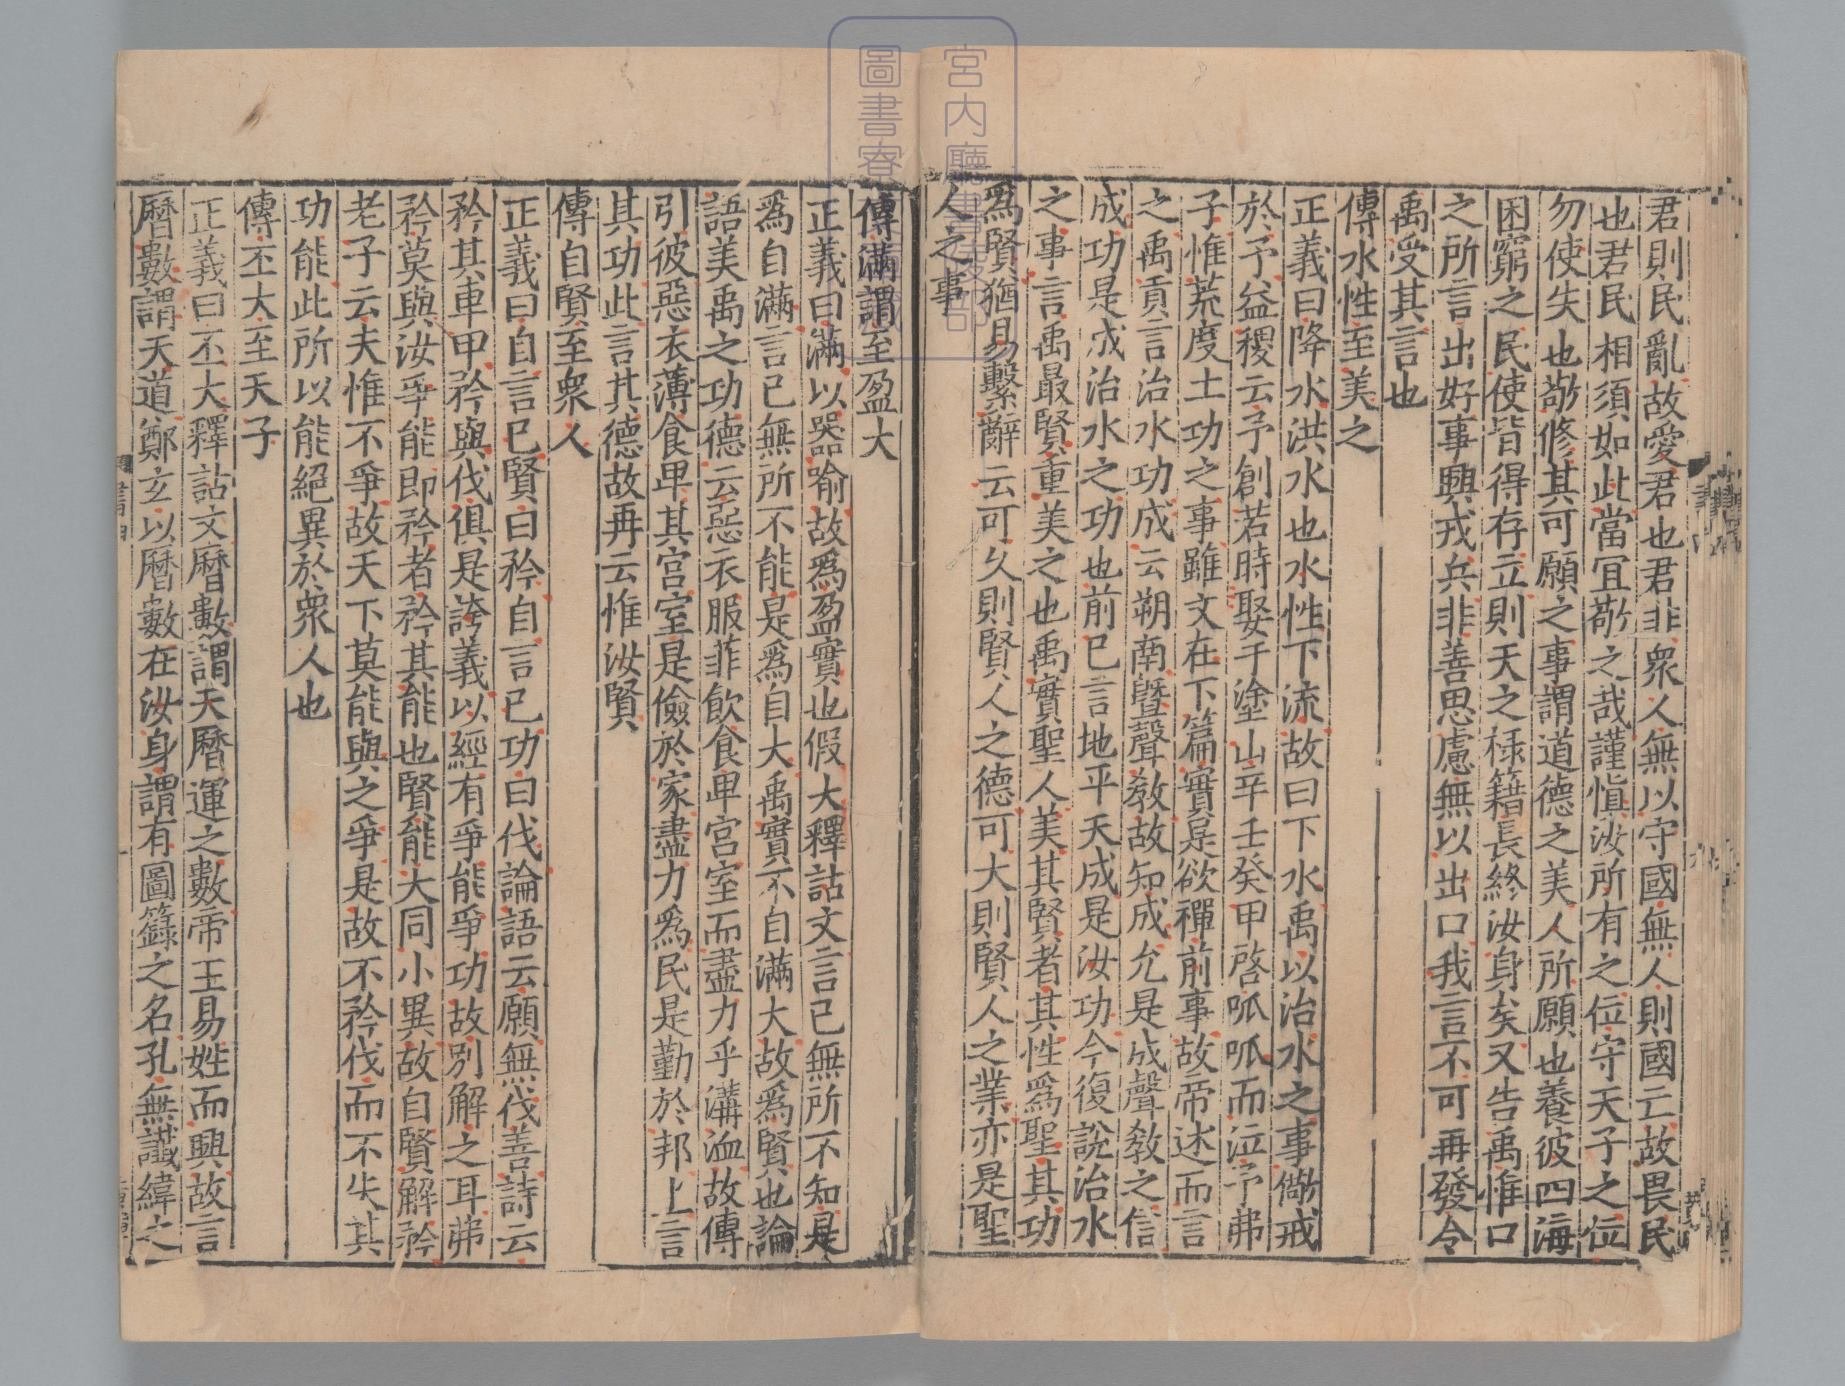 君則民亂故愛君也君非衆人無以守國無人則國亡故畏民
也君民相須如此當宜敬之哉謹愼汝所有之位守天子之位
勿使失也敬修其可願之事謂道德之美人所願也養彼四海
困窮之民使皆得存立則天之祿籍長終汝身矣又告禹惟口
之所言出好事興戎兵非善思慮無以出口我言不可再發令
禹受其言也
傳水性至美之
正義曰降水洪水也水性下流故曰下水禹以治水之事儆戒
於予益稷云予創若時娶于塗山辛壬癸甲啓呱呱而泣予弗
子惟荒度土功之事雖文在下篇實是欲禪前事故帝述而言
之禹貢言治水功成云朔南曁聲敎故知成允是成聲敎之信
成功是成治水之功也前已言地平天成是汝功今復說治水
之事言禹最賢重美之也禹實聖人美其賢者其性爲聖其功
爲賢猶易繫辭云可久則賢人之德可大則賢人之業亦是聖
人之事
傳滿謂至盈大
正義曰滿以器喻故爲盈實也假大釋詁文言已無所不知是
爲自滿言已無所不能是爲自大禹實不自滿大故爲賢也論
語美禹之功德云惡衣服菲飮食卑宮室而盡力乎溝洫故傳
引彼惡衣薄食卑其宮室是儉於家盡力爲民是勤於邦上言
其功此言其德故再云惟汝賢
傳自賢至衆人
正義曰自言已賢曰矜自言已功曰伐論語云願無伐善詩云
矜其車甲矜與伐俱是誇義以經有爭能爭功故別解之耳弗
矜莫與汝爭能即矜者矜其能也賢能大同小異故自賢解矜
老子云夫惟不爭故天下莫能與之爭是故不矜伐而不失其
功能此所以能絕異於衆人也
傳丕大至天子
正義曰丕大釋詁文曆數謂天曆運之數帝王易姓而興故言
曆數謂天道鄭玄以曆數在汝身謂有圖籙之名孔無讖緯之
宮内廳書陵部
圖書寮